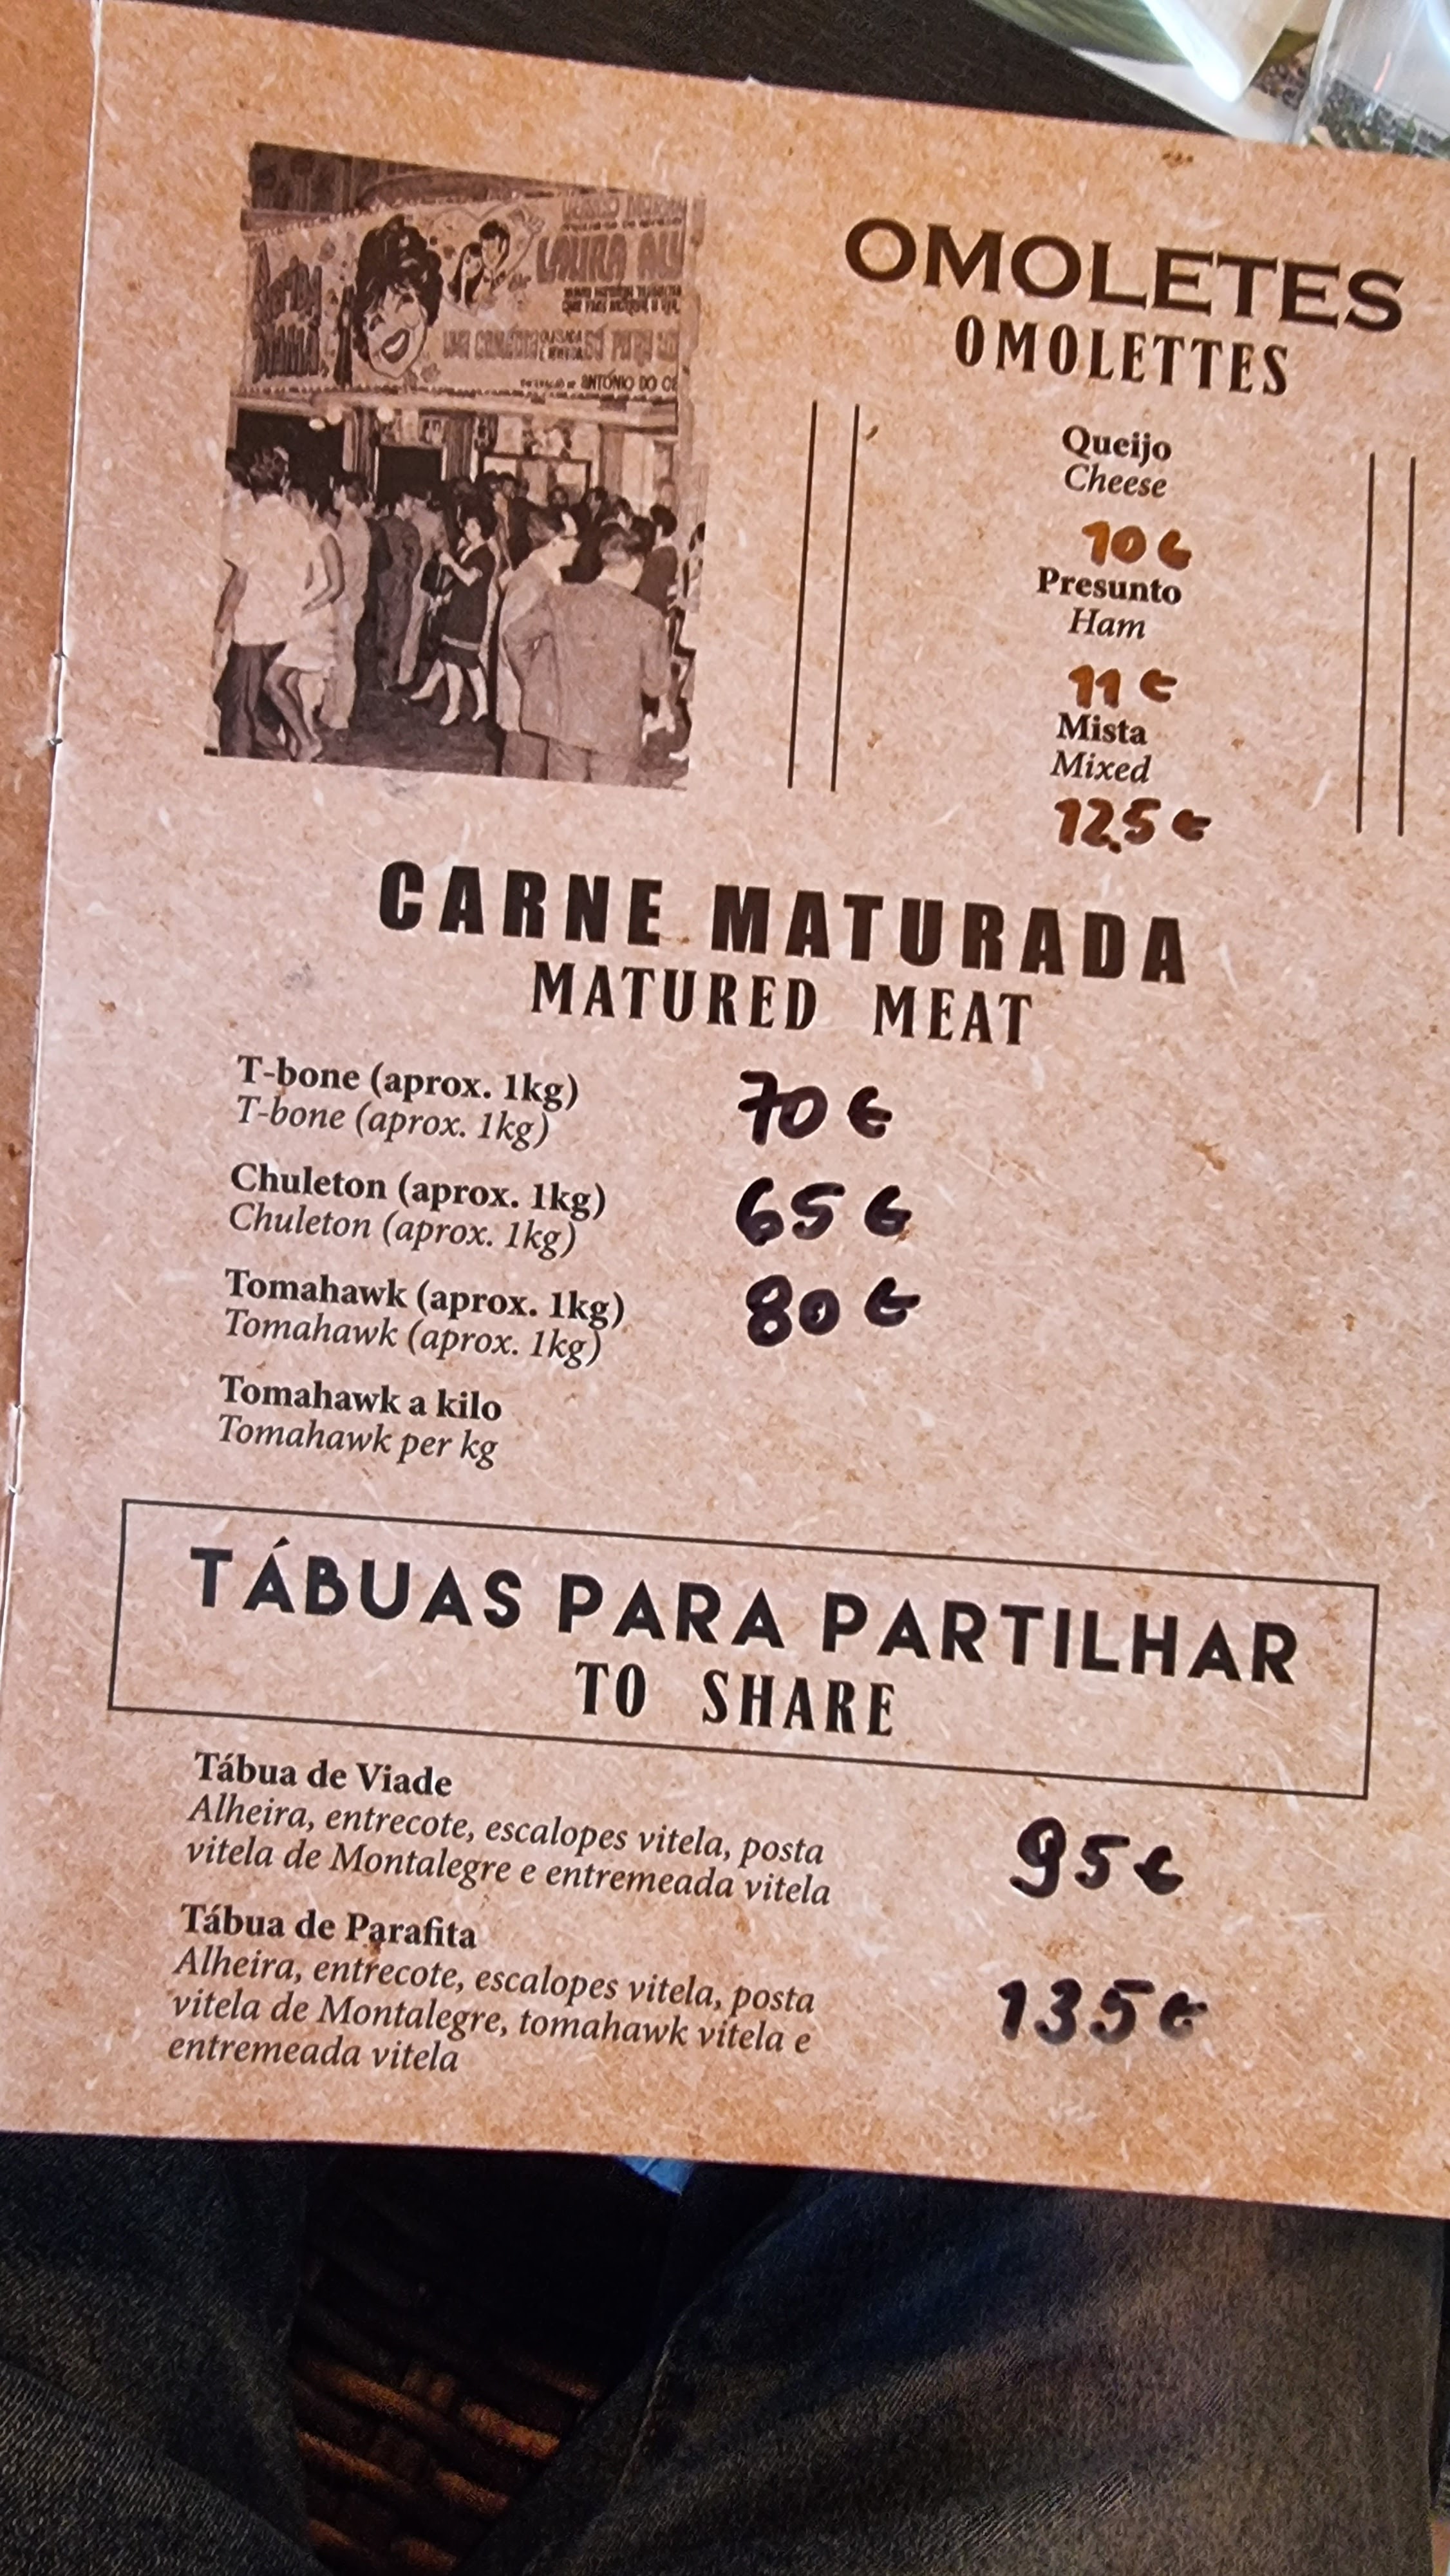 LAURA
ANTÓNIO DO
OMOLETES
OMOLETTES
Queijo
Cheese
10€
Presunto
Ham
11€
Mista
Mixed
12,5€
CARNE MATURADA
MATURED MEAT
T-bone (aprox. 1kg) 70€
T-bone (aprox. 1kg)
Chuleton (aprox. 1kg) 65€
Chuleton (aprox. 1kg)
Tomahawk (aprox. 1kg) 80€
Tomahawk (aprox. 1kg)
Tomahawk a kilo
Tomahawk per kg
TÁBUAS PARA PARTILHAR
TO SHARE
Tábua de Viade
Alheira, entrecote, escalopes vitela, posta 95€
vitela de Montalegre e entremeada vitela
Tábua de Parafita
Alheira, entrecote, escalopes vitela, posta 135€
vitela de Montalegre, tomahawk vitela e
entremeada vitela